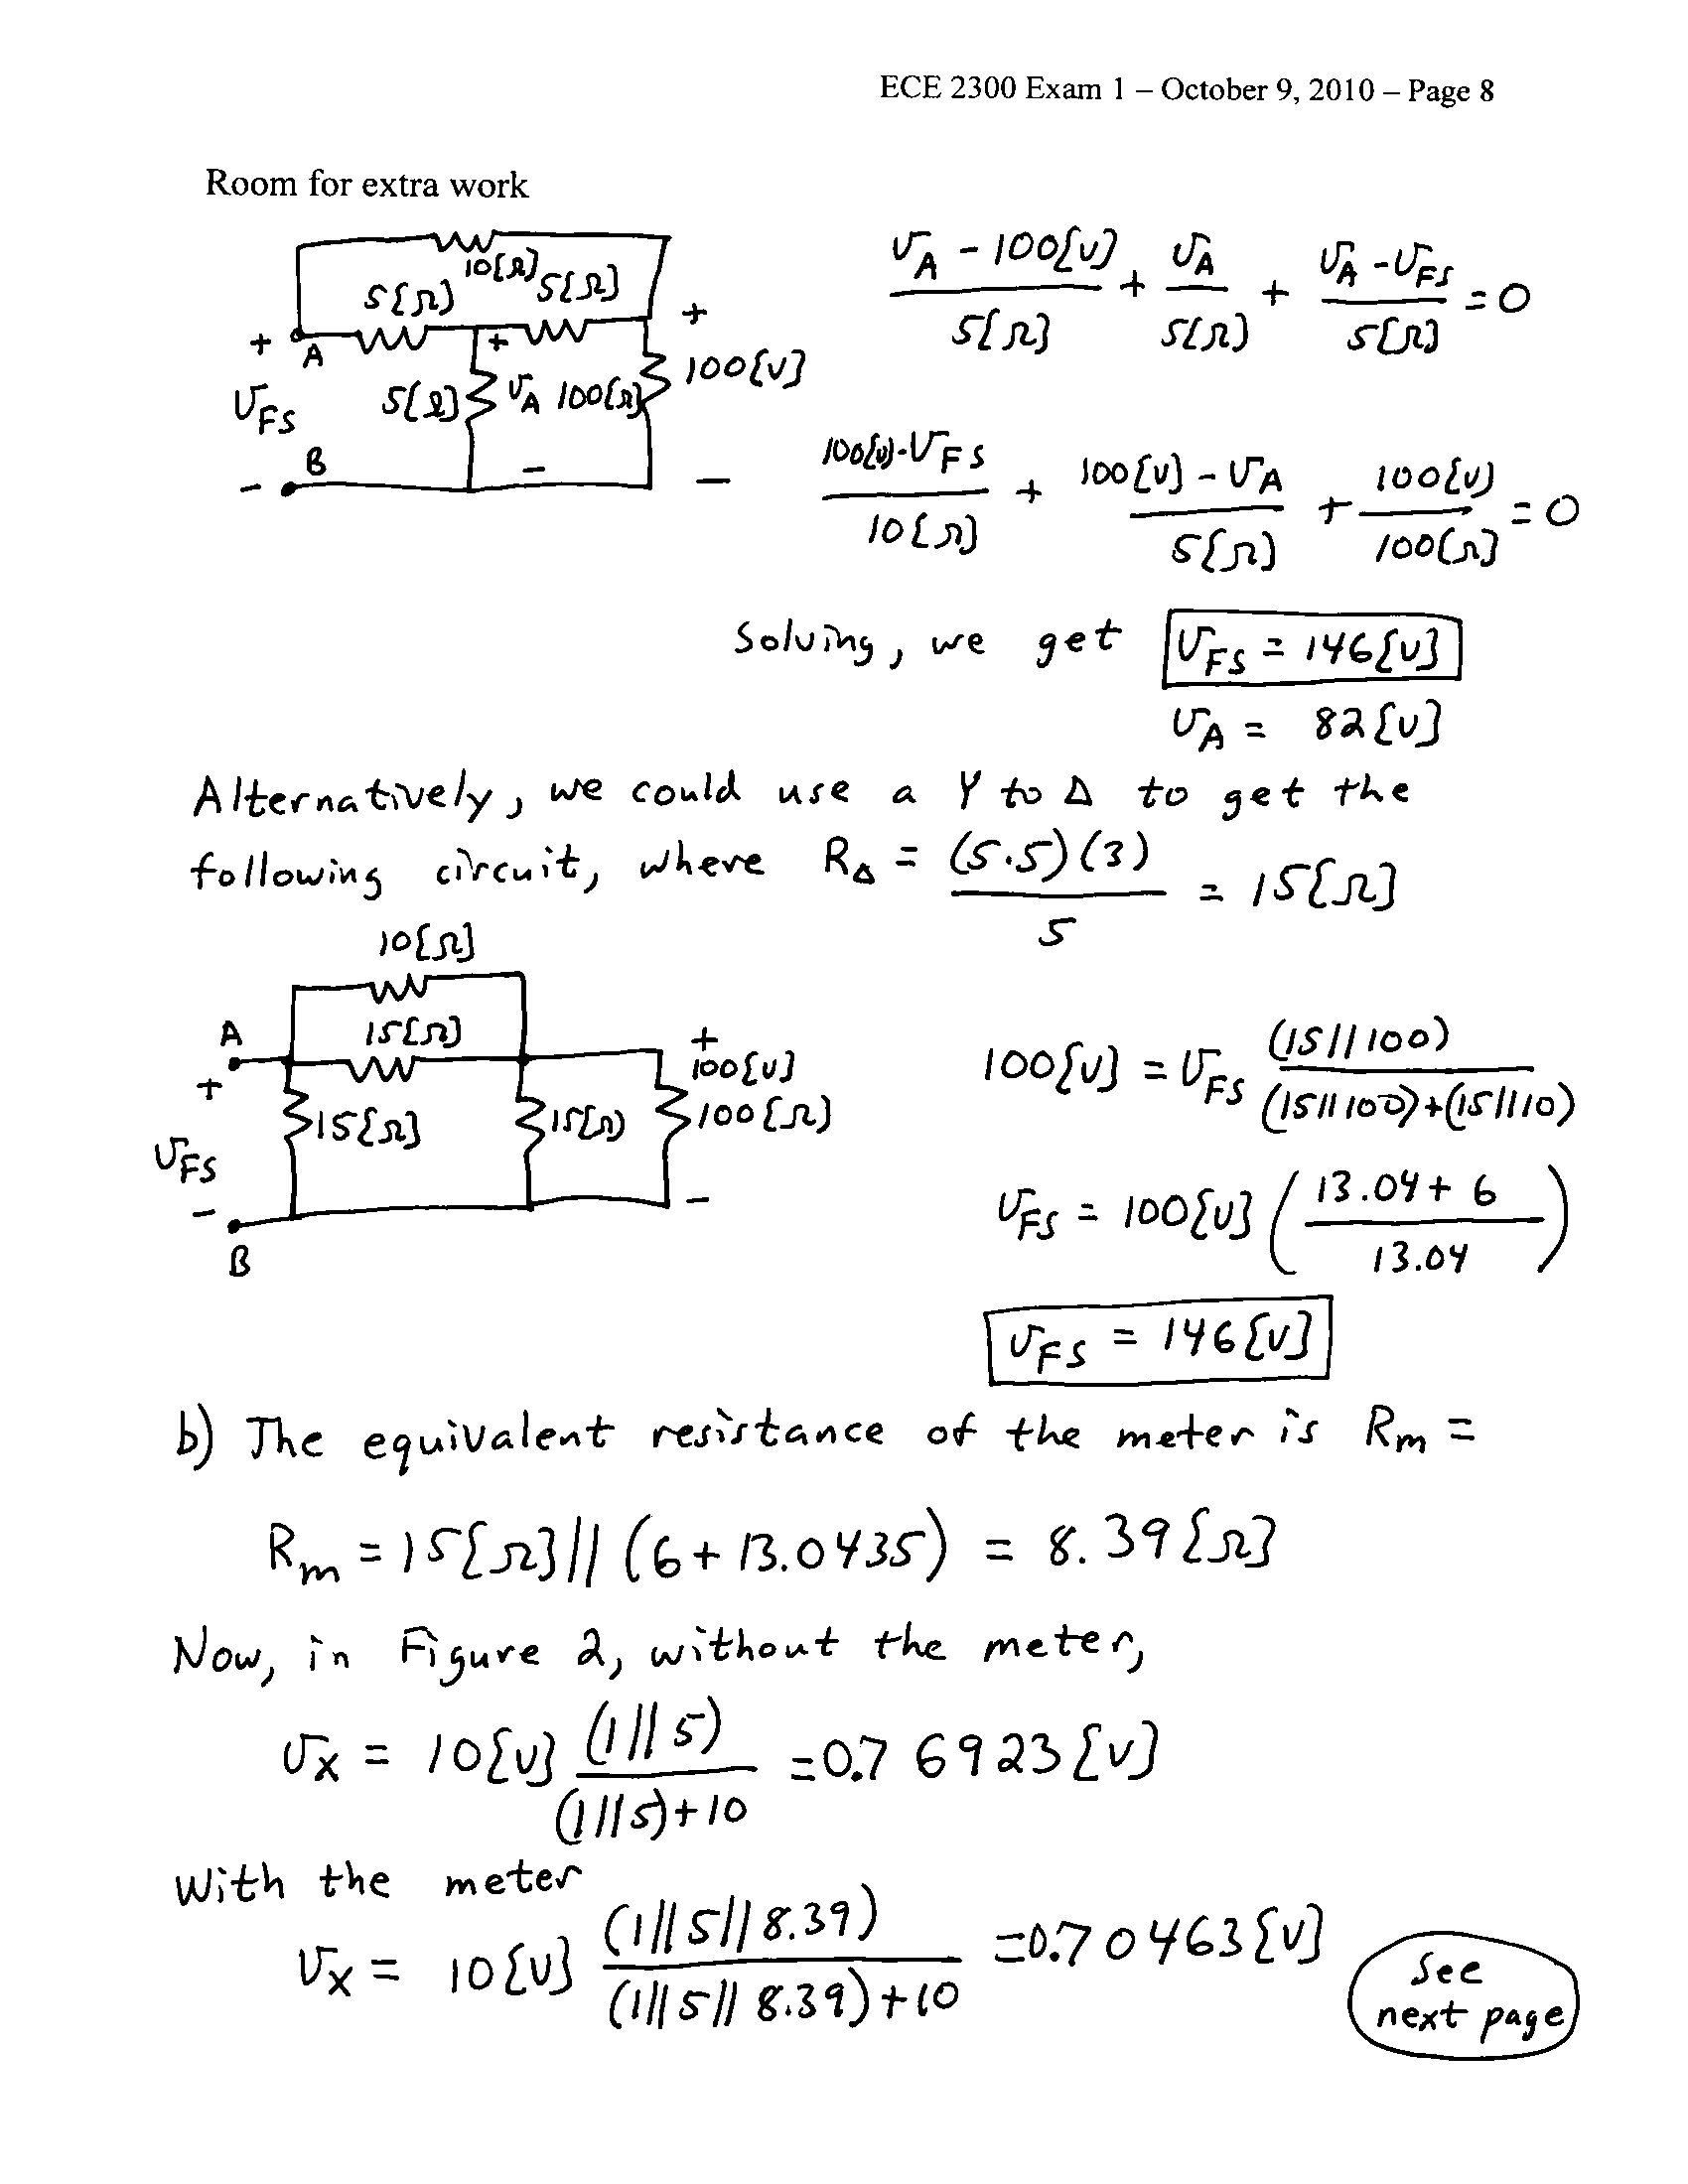 ECE 2300 Exam 1 – October 9, 2010 – Page 8
Room for extra work
10[Ω]
5[Ω]
5[Ω]
+
A
+
+
υFS
5[Ω]
υA
100[Ω]
100[V]
B
-
-
-
(υA - 100[V])/5[Ω] + υA/5[Ω] + (υA - υFS)/5[Ω] = 0
(100[V] - υFS)/10[Ω] + (100[V] - υA)/5[Ω] + 100[V]/100[Ω] = 0
Solving, we get υFS = 146[V]
υA = 82[V]
Alternatively, we could use a Y to Δ to get the
following circuit, where RΔ = (5·5)(3)/5 = 15[Ω]
10[Ω]
A
15[Ω]
+
+
100[V]
15[Ω]
15[Ω]
100[Ω]
υFS
-
-
B
100[V] = υFS (15||100)/((15||100)+(15||10))
υFS = 100[V] ((13.04 + 6)/13.04)
υFS = 146[V]
b) The equivalent resistance of the meter is Rm =
Rm = 15[Ω] || (6 + 13.0435) = 8.39[Ω]
Now, in Figure 2, without the meter,
υX = 10[V] (1||5)/((1||5)+10) = 0.76923[V]
With the meter
υX = 10[V] (1||5||8.39)/((1||5||8.39)+10) = 0.70463[V]
See
next page